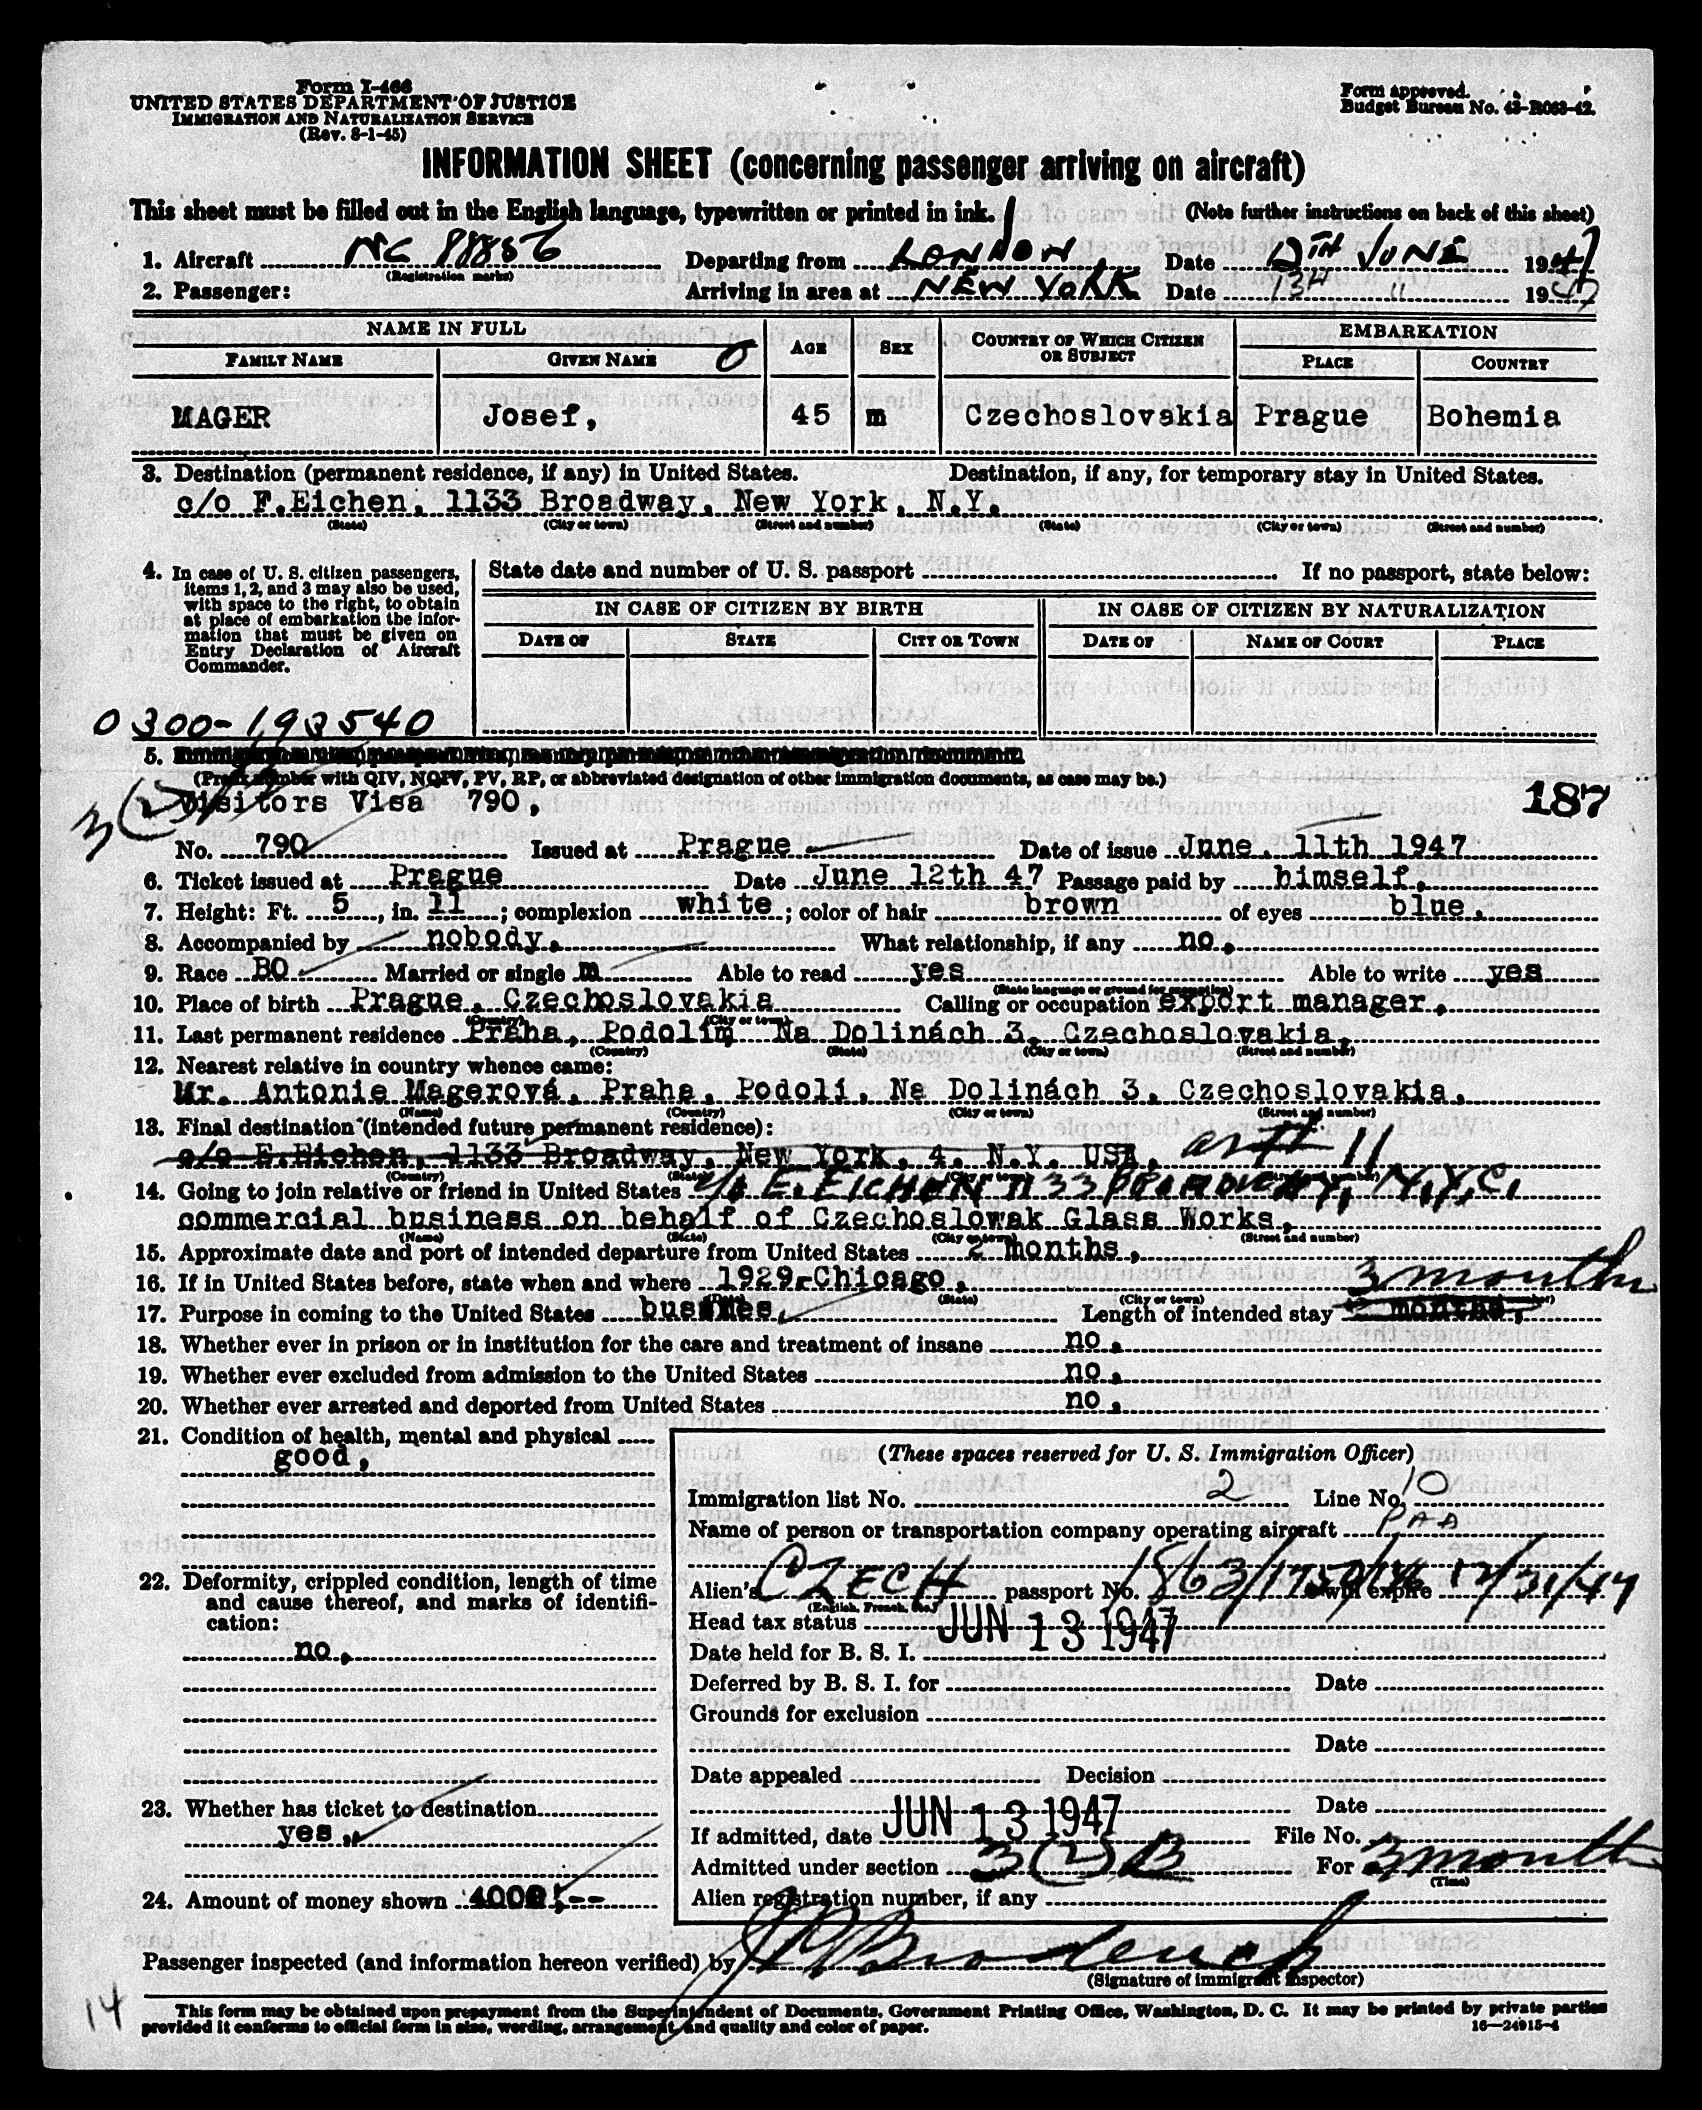 Form I-466
UNITED STATES DEPARTMENT OF JUSTICE
IMMIGRATION AND NATURALIZATION SERVICE
(Rev. 8-1-45)
Form approved.
Budget Bureau No. 43-R063-42.
INFORMATION SHEET (concerning passenger arriving on aircraft)
This sheet must be filled out in the English language, typewritten or printed in ink.
(Note further instructions on back of this sheet)
1. Aircraft NC 88856 Departing from LONDON Date 12TH JUNE 1947
(Registration marks)
2. Passenger: Arriving in area at NEW YORK Date 13H " 1947
NAME IN FULL AGE SEX COUNTRY OF WHICH CITIZEN OR SUBJECT EMBARKATION
FAMILY NAME GIVEN NAME PLACE COUNTRY
MAGER Josef, 45 m Czechoslovakia Prague Bohemia
3. Destination (permanent residence, if any) in United States. Destination, if any, for temporary stay in United States.
c/o F.Eichen, 1133 Broadway, New York, N.Y.
(State) (City or town) (Street and number) (State) (City or town) (Street and number)
4. In case of U. S. citizen passengers, items 1, 2, and 3 may also be used, with space to the right, to obtain at place of embarkation the information that must be given on Entry Declaration of Aircraft Commander.
State date and number of U. S. passport If no passport, state below:
IN CASE OF CITIZEN BY BIRTH IN CASE OF CITIZEN BY NATURALIZATION
DATE OF STATE CITY OR TOWN DATE OF NAME OF COURT PLACE
0300-193540
5.
(Prefix number with QIV, NQIV, PV, RP, or abbreviated designation of other immigration documents, as case may be.)
3(2)
Visitors Visa 790,
187
No. 790 Issued at Prague Date of issue June, 11th 1947
6. Ticket issued at Prague Date June 12th 47 Passage paid by himself,
7. Height: Ft. 5, in. 11; complexion white; color of hair brown of eyes blue,
8. Accompanied by nobody, What relationship, if any no,
9. Race BO Married or single m Able to read yes Able to write yes
(State language or ground for exemption)
10. Place of birth Prague, Czechoslovakia Calling or occupation export manager,
(Country) (City or town)
11. Last permanent residence Praha, Podolim Na Dolinách 3, Czechoslovakia,
(Country) (State) (City or town) (Street and number)
12. Nearest relative in country whence came:
Mr. Antonie Magerová, Praha, Podoli, Na Dolinách 3, Czechoslovakia,
(Name) (Country) (City or town) (Street and number)
13. Final destination (intended future permanent residence):
c/o E.Eichen, 1133 Broadway, New York, 4, N.Y. USA, 11
(Country) (State)
14. Going to join relative or friend in United States c/o E. EICHEN 1133 BROADWAY, N.Y.C.
commercial business on behalf of Czechoslowak Glass Works,
(Name) (State) (City or town) (Street and number)
15. Approximate date and port of intended departure from United States 2 months,
16. If in United States before, state when and where 1929-Chicago,
(Date) (State) (City or town)
3 months
17. Purpose in coming to the United States Length of intended stay months,
18. Whether ever in prison or in institution for the care and treatment of insane no,
19. Whether ever excluded from admission to the United States no,
20. Whether ever arrested and deported from United States no,
21. Condition of health, mental and physical
good,
(These spaces reserved for U. S. Immigration Officer)
Immigration list No. 2 Line No. 10
Name of person or transportation company operating aircraft PAA
22. Deformity, crippled condition, length of time and cause thereof, and marks of identification:
no,
Alien's CZECH passport No. will expire 12/31/47
(English, French, etc.)
Head tax status
JUN 13 1947
Date held for B. S. I.
Deferred by B. S. I. for Date
Grounds for exclusion
Date
Date appealed Decision
Date
23. Whether has ticket to destination
yes,
If admitted, date JUN 13 1947 File No.
Admitted under section 3(2)B For 3 months
(Time)
24. Amount of money shown
Alien registration number, if any
Passenger inspected (and information hereon verified) by
(Signature of immigrant inspector)
14
This form may be obtained upon prepayment from the Superintendent of Documents, Government Printing Office, Washington, D. C. It may be printed by private parties
provided it conforms to official form in size, wording, arrangement, and quality and color of paper.
16—24915-4